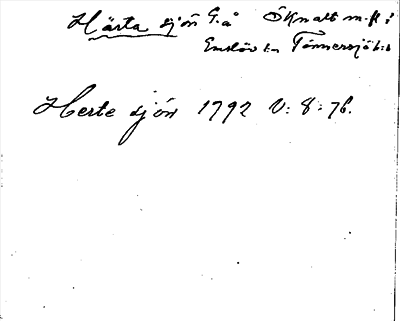 Härta sjön G.å Öknatt m.fl. i
Enslöv sn Tönnersjö h:d
Herte sjön 1792 V: 8: 76.